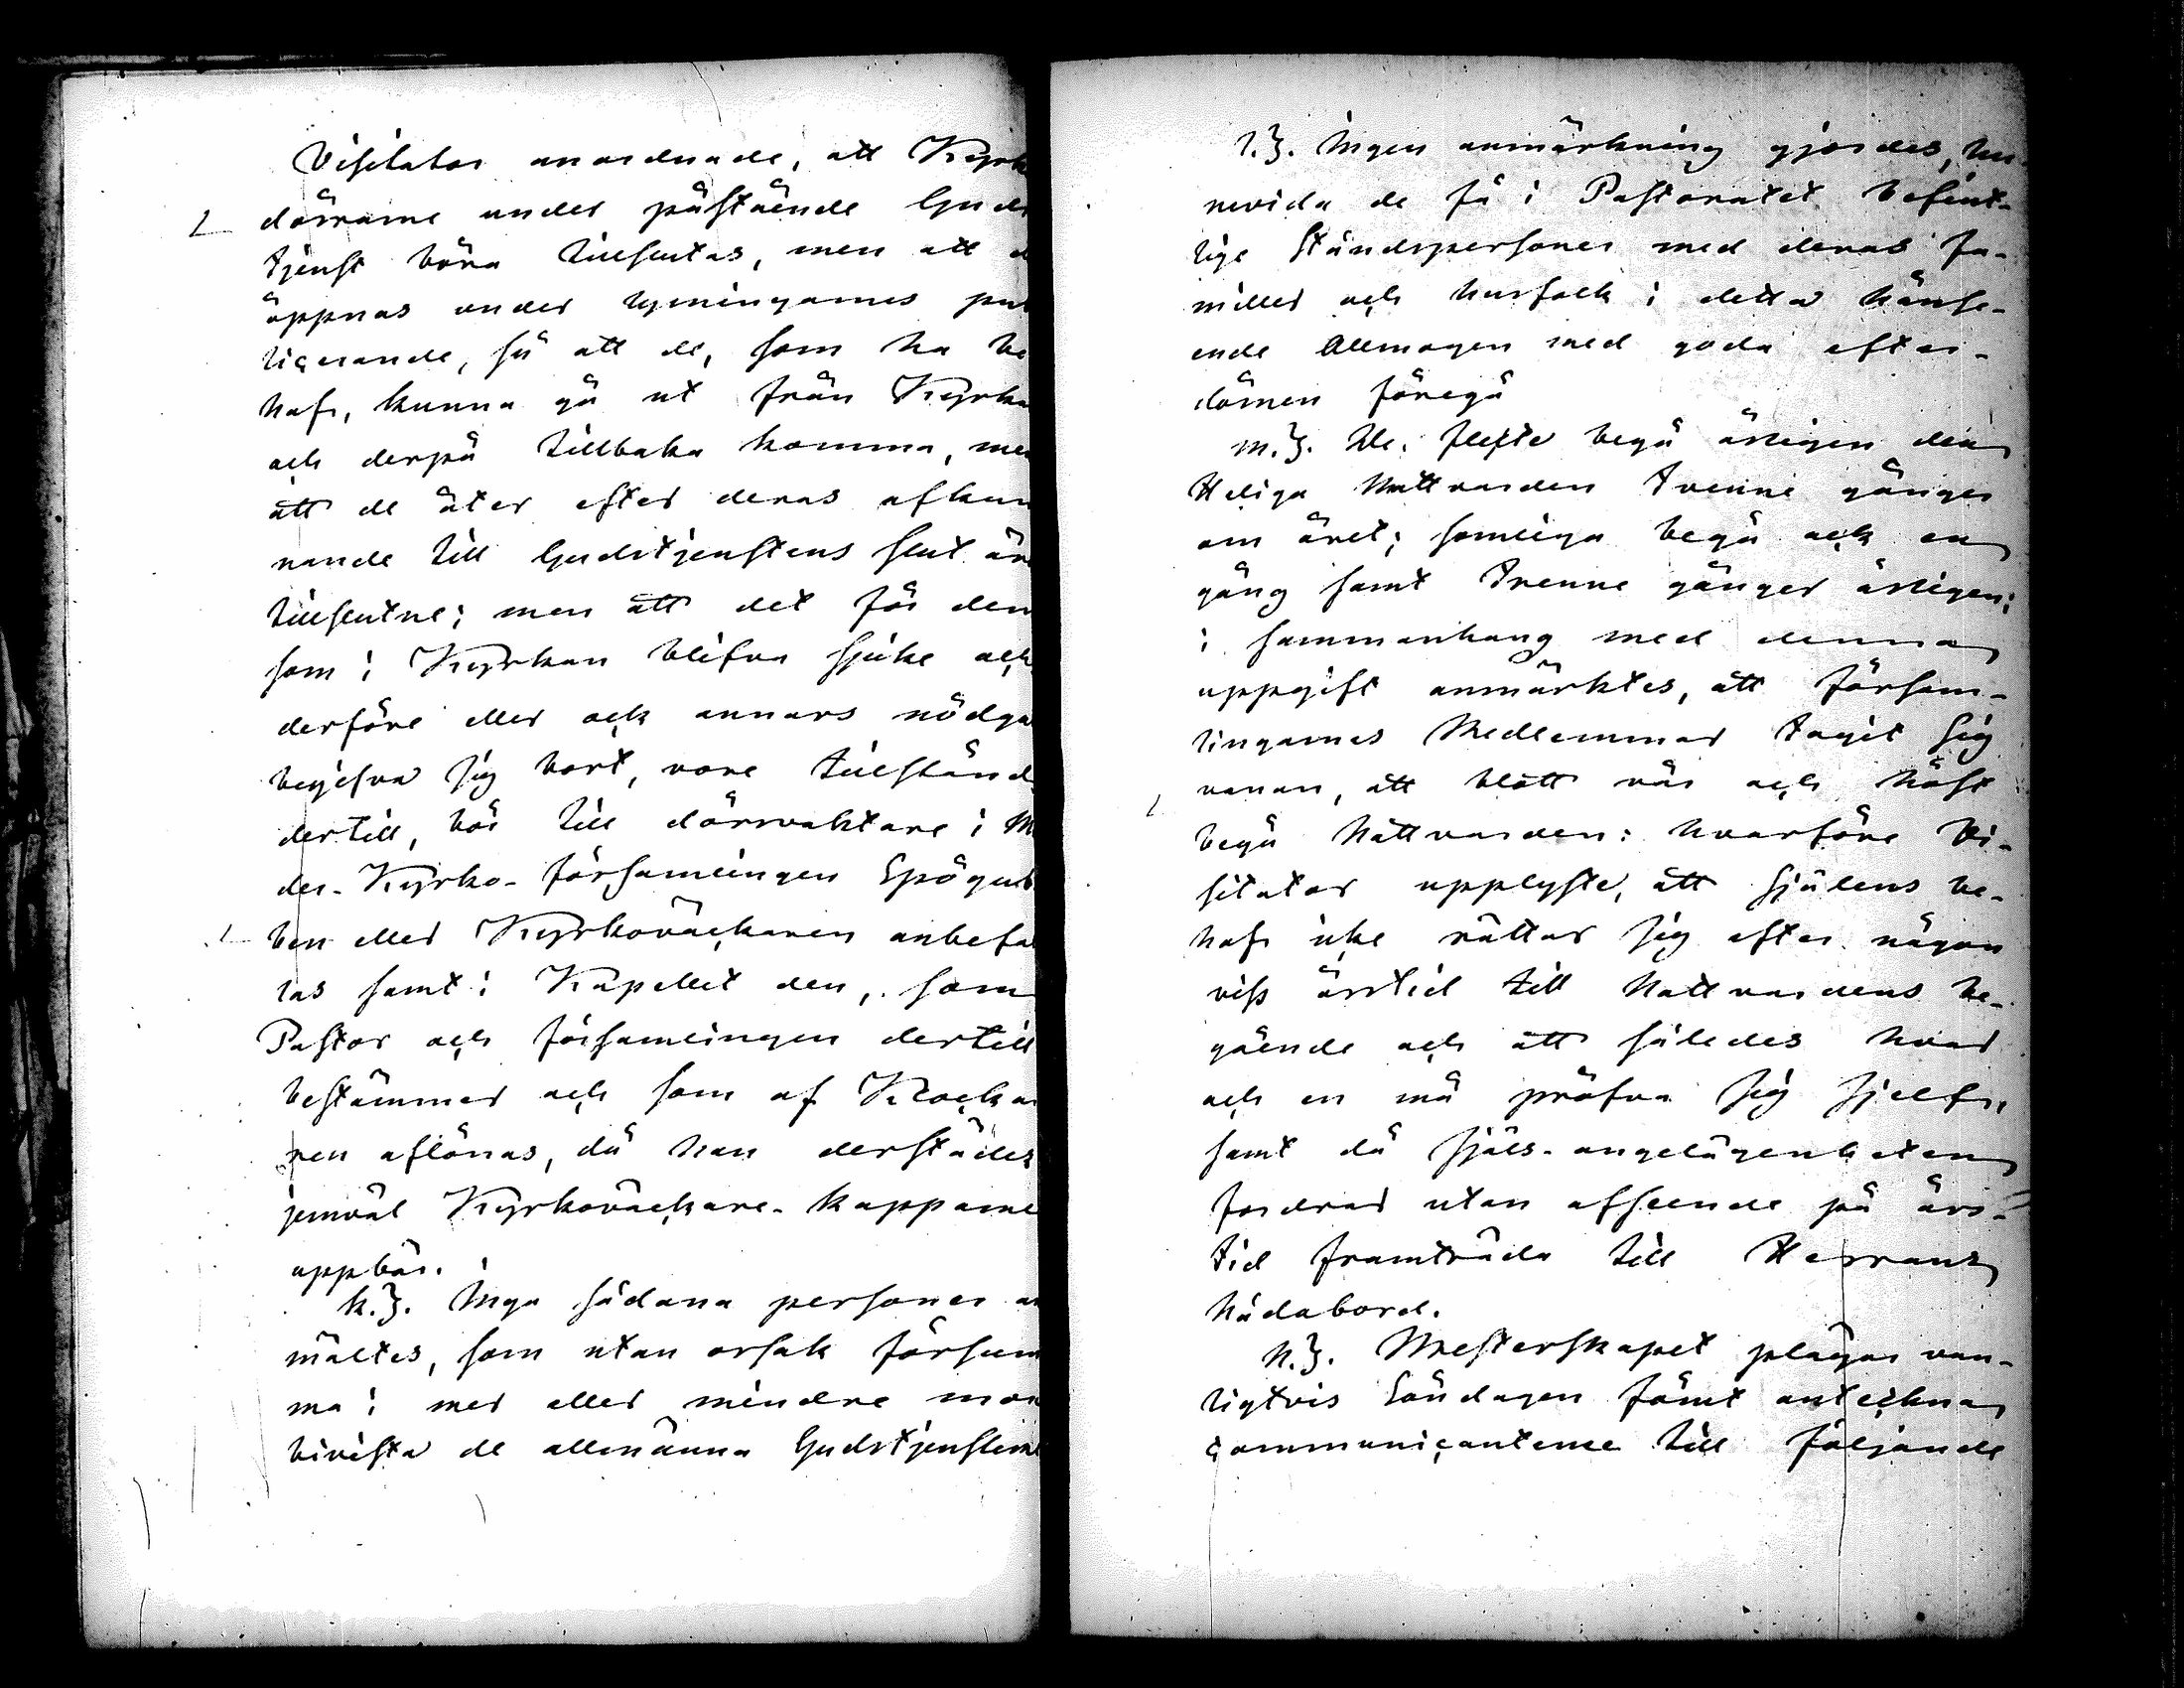 Visitator anordnade, att Kyrk
dörrarne under påstående Guds
tjenst böra tillslutas, men att d
öppnas under lysningarnes pub
licerande, så att de, som ha be
hof, kunna gå ut från Kyrka
och derpå tillbaka komma, men
att de åter efter deras afkun
nande till Gudstjenstens slut är
tillslutne; men att det för dem
som i Kyrkan blifva sjuke och
derföre eller ock annars nödga
begifva sig bort, vore tillstånd
dertill, bör till dörrvaktare i Mo
der-Kyrko-församlingen Spögub
ben eller Kyrkoväckaren anbefal
las samt i Kapellet den, som
Pastor och församlingen dertill
bestämmer och som af Klocka
ren aflönas, då han derstädes
jemväl Kyrkoväckare-kapparne
uppbär.
k.). Inga sådana personer an
mältes, som utan orsak försum
ma i mer eller mindre mon
bivista de allmänna Gudstjensterne
l.). Ingen anmärkning gjordes, hu-
ruvida de få i Pastoratet befint-
lige Ståndspersoner med deras fa-
miller och husfolk i detta hänse-
ende Allmogen med goda efter-
dömen föregå
m.). De fleste begå årligen den
Heliga Nattvarden tvenne gånger
om året; somliga begå ock en
gång samt trenne gånger årligen;
i sammanhang med denna
uppgift anmärktes, att försam-
lingarnes Medlemmar tagit sig
vanan, att blott vår och höst
begå Nattvarden: hvarföre Vi-
sitator upplyste, att själens be-
hof icke rättar sig efter någon
viss årstid till Nattvardens be-
gående och att således hvar
och en må pröfva sig sjelf,
samt då själs-angelägenheten
fordrar utan afseende på års-
tid framträda till Herrans
Nådabord.
n.). Presterskapet plägar van-
ligtvis Söndagen förut anteckna
communicanterne till följande